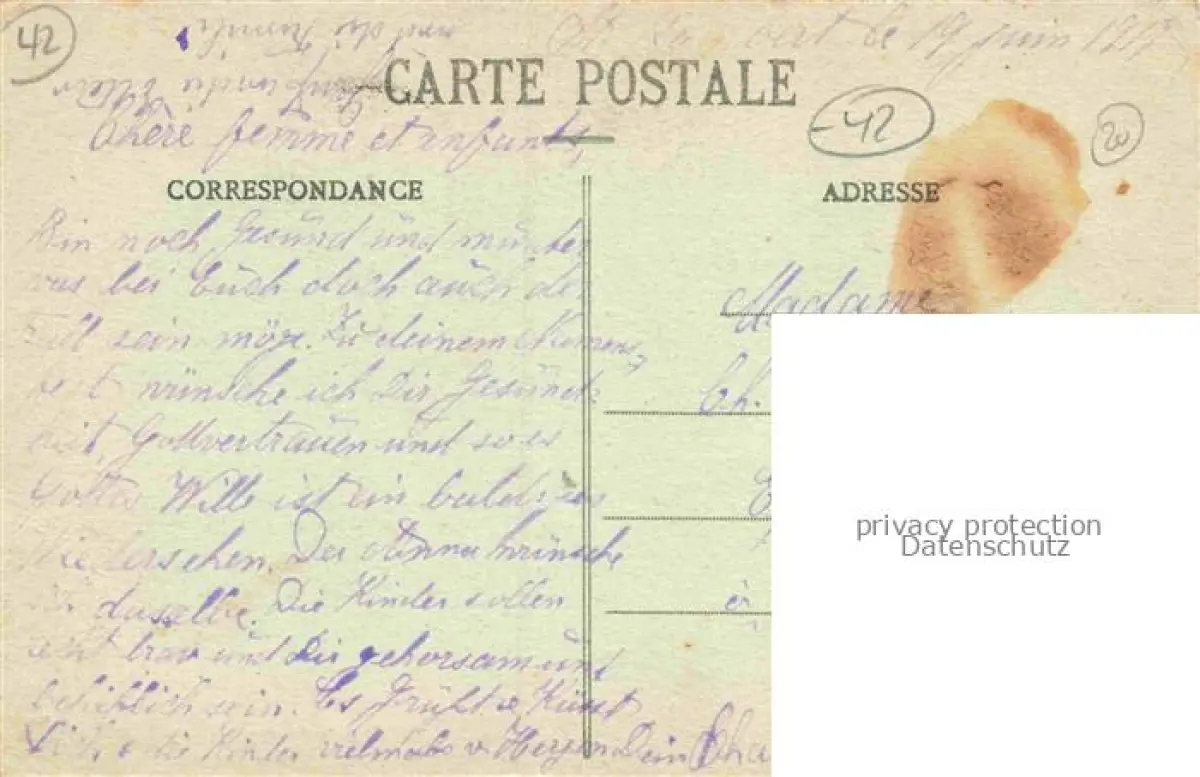 42
le 19 juin
CARTE POSTALE
-42
20
Chère femme et enfants,
CORRESPONDANCE
ADRESSE
Bin noch Gesund und munter
was bei Euch doch auch der
Fall sein möge. Zu deinem Namens-
wünsche ich Dir Gesund-
heit, Gottvertrauen und so es
Gottes Wille ist ein baldiges
Wiedersehen. Der Anna wünsche
ich dasselbe. Die Kinder sollen
recht brav und Dir gehorsam und
behilflich sein. Es Grüßt u Küsst
Dich u die Kinder vielmals v. Herzen Dein
Madame
Ch.
privacy protection
Datenschutz